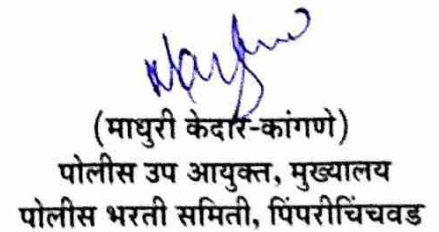 (माधुरी केदार-कांगणे)
पोलीस उप आयुक्त, मुख्यालय
पोलीस भरती समिती, पिंपरीचिंचवड